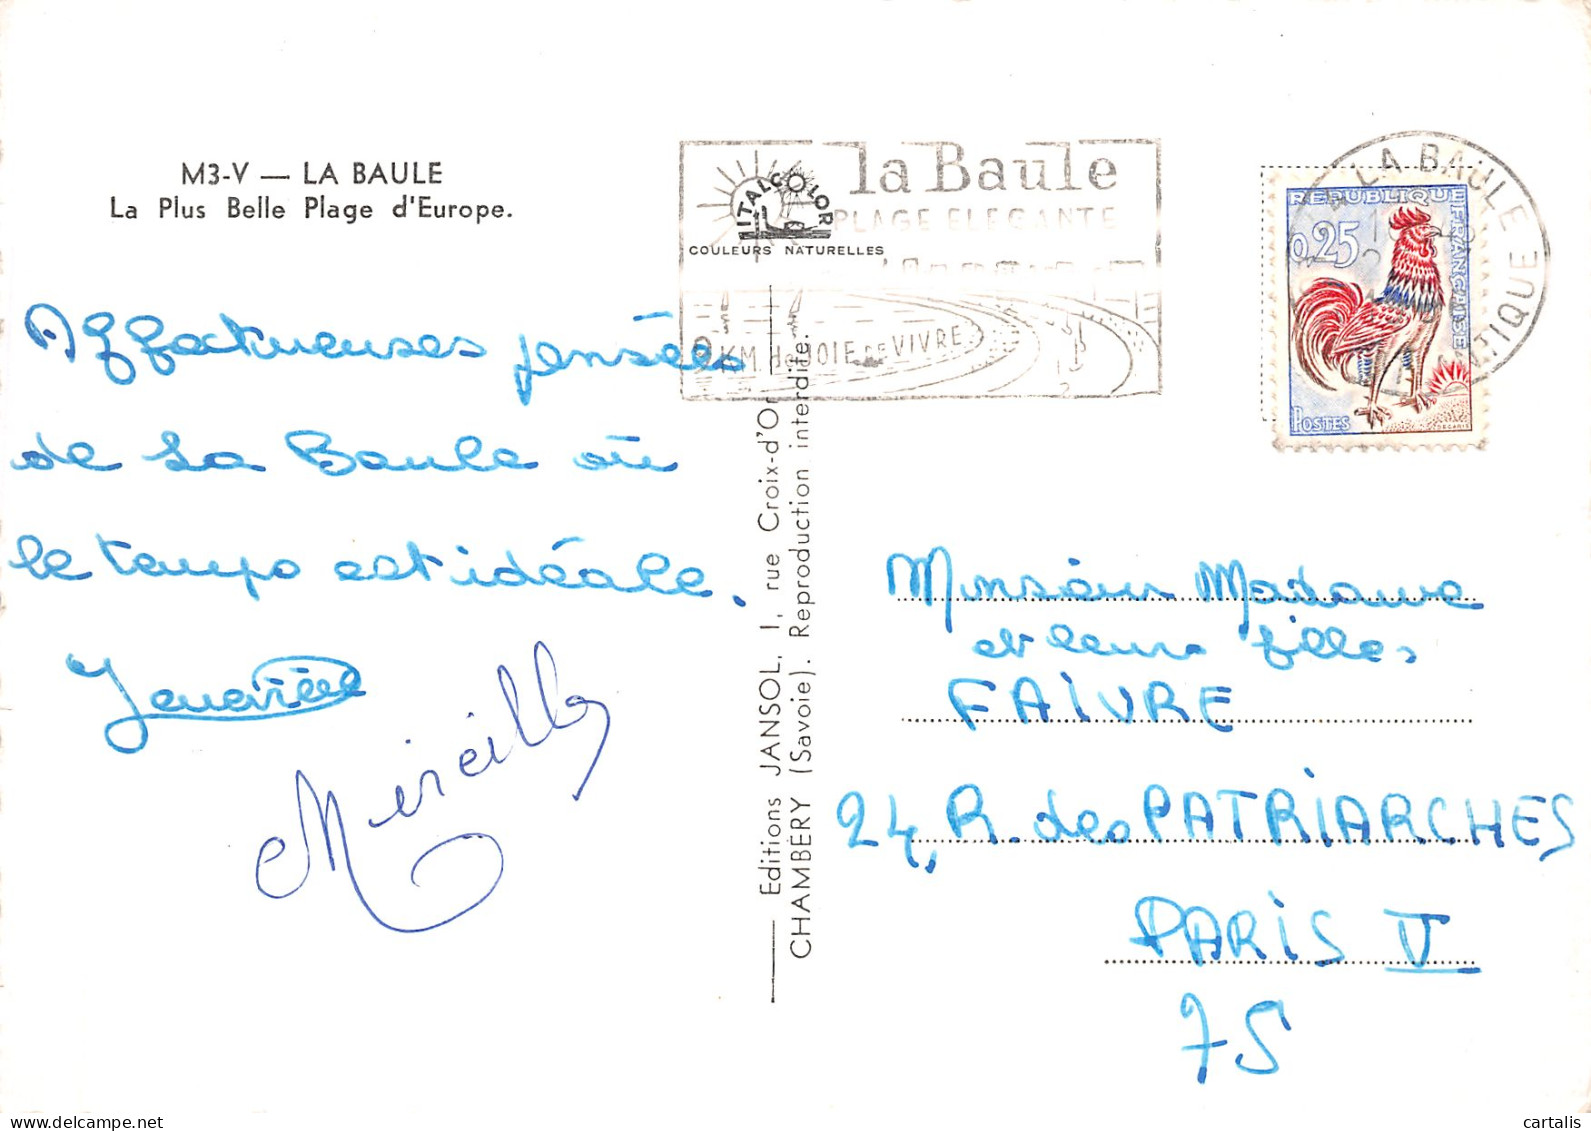 M3-V — LA BAULE
La Plus Belle Plage d'Europe.
Affectueuses pensées
de La Baule où
le temps est idéale.
Mireille
ITALCOLOR
COULEURS NATURELLES
la Baule
PLAGE ELEGANTE
9 KM de JOIE DE VIVRE
Editions JANSOL, 1, rue Croix-d'Or
CHAMBÉRY (Savoie). Reproduction interdite.
LA BAULE
REPUBLIQUE FRANÇAISE
0,25
POSTES
Monsieur Madame
et leurs filles
FAIVRE
24, R. des PATRIARCHES
PARIS V
75
delcampe.net
cartalis